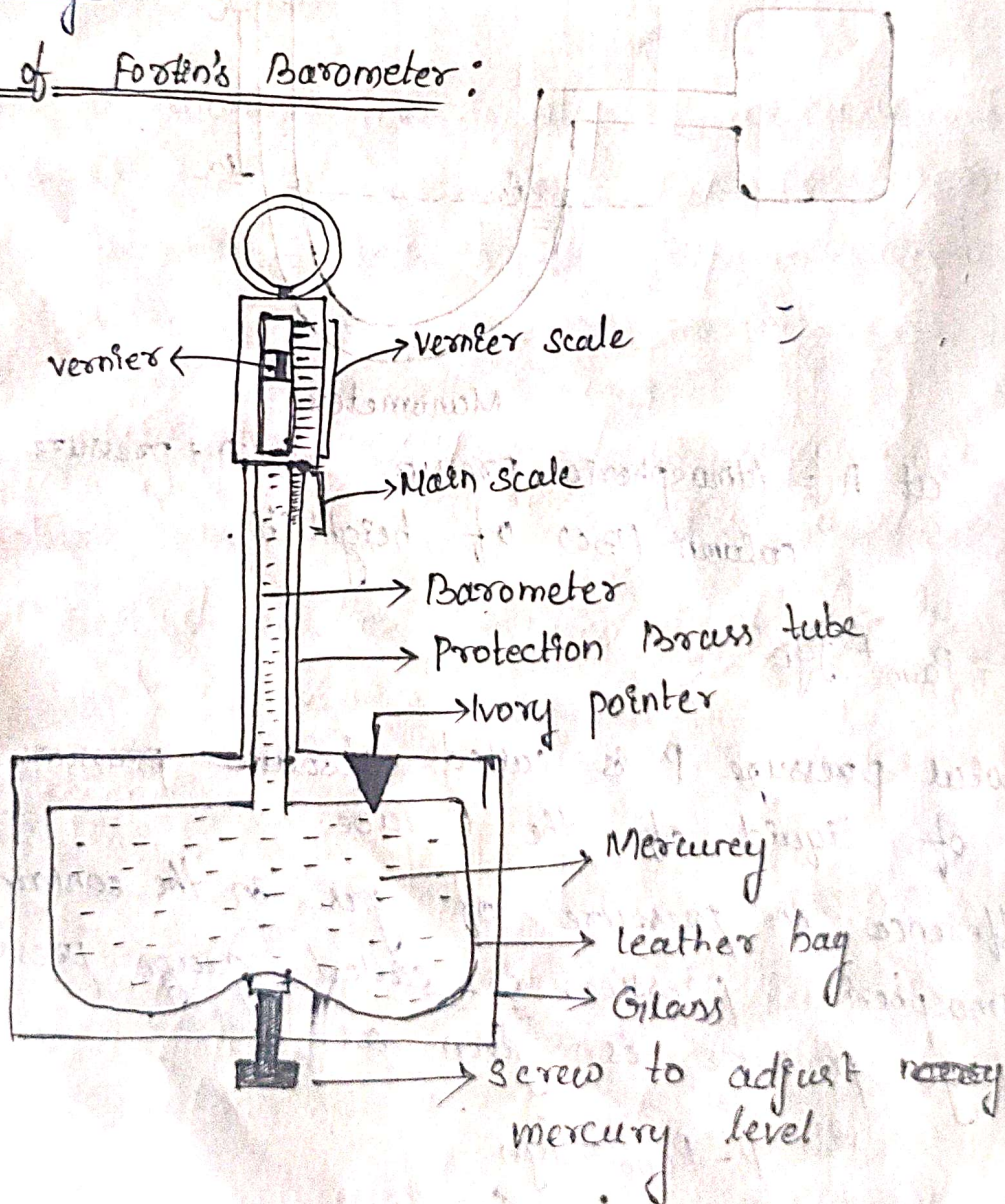 of Fortin's Barometer:
vernier
Vernier scale
Main scale
Barometer
Protection Brass tube
Ivory pointer
Mercurey
leather bag
Glass
screw to adjust
mercury level